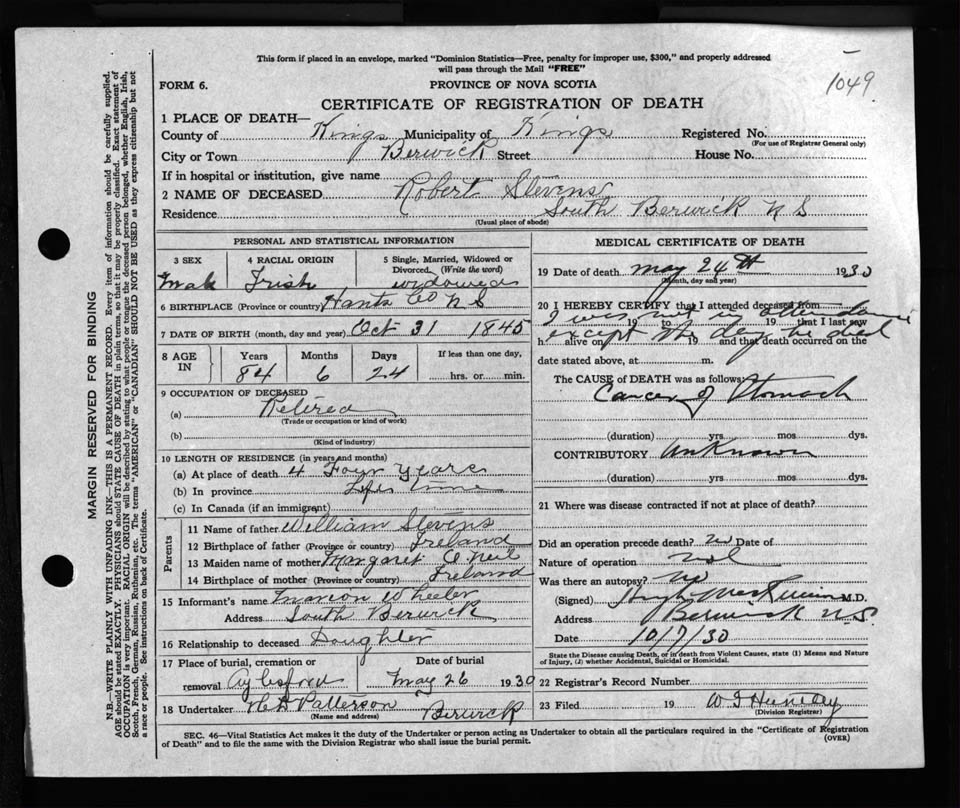 This form if placed in an envelope, marked "Dominion Statistics—Free, penalty for improper use, $300," and properly addressed
will pass through the Mail "FREE"
1049
FORM 6.
PROVINCE OF NOVA SCOTIA
CERTIFICATE OF REGISTRATION OF DEATH
1 PLACE OF DEATH—
County of Kings Municipality of Kings Registered No.
(For use of Registrar General only)
City or Town Berwick Street House No.
If in hospital or institution, give name
2 NAME OF DECEASED Robert Stevens
Residence South Berwick N S
(Usual place of abode)
PERSONAL AND STATISTICAL INFORMATION
3 SEX
Male
4 RACIAL ORIGIN
Irish
5 Single, Married, Widowed or
Divorced (Write the word)
widower
6 BIRTHPLACE (Province or country) Hants Co N S
7 DATE OF BIRTH (month, day and year) Oct 31 1845
8 AGE IN
Years Months Days If less than one day,
84 6 24 hrs. or min.
9 OCCUPATION OF DECEASED
(a) Retired
(Trade or occupation or kind of work)
(b)
(Kind of industry)
10 LENGTH OF RESIDENCE (in years and months)
(a) At place of death 4 Four years
(b) In province Life time
(c) In Canada (if an immigrant)
Parents
11 Name of father William Stevens
12 Birthplace of father (Province or country) Ireland
13 Maiden name of mother Margaret O Neil
14 Birthplace of mother (Province or country) Ireland
15 Informant's name Marion Wheeler
Address South Berwick
16 Relationship to deceased Doughter
17 Place of burial, cremation or Date of burial
removal Aylesford May 26 1930
18 Undertaker Patterson Berwick
(Name and address)
MEDICAL CERTIFICATE OF DEATH
19 Date of death May 24th 1930
(Month, day and year)
20 I HEREBY CERTIFY that I attended deceased from
I was not in attendance
19 to 19 that I last saw
except the day he died
h alive on 19 and that death occurred on the
date stated above, at m.
The CAUSE OF DEATH was as follows:
Cancer of Stomach
(duration) yrs mos dys.
CONTRIBUTORY unknown
(duration) yrs. mos dys.
21 Where was disease contracted if not at place of death?
Did an operation precede death? no Date of
Nature of operation nil
Was there an autopsy? no
(Signed) Hugh M.D.
Address Berwick N.S.
Date 10/7/30
State the Disease causing Death, or in death from Violent Causes, state (1) Means and Nature
of Injury, (2) whether Accidental, Suicidal or Homicidal.
22 Registrar's Record Number
23 Filed 19
(Division Registrar)
SEC. 46—Vital Statistics Act makes it the duty of the Undertaker or person acting as Undertaker to obtain all the particulars required in the "Certificate of Registration
of Death" and to file the same with the Division Registrar who shall issue the burial permit.
(OVER)
MARGIN RESERVED FOR BINDING
N.B.—WRITE PLAINLY WITH UNFADING INK—THIS IS A PERMANENT RECORD. Every item of information should be carefully supplied.
AGE should be stated EXACTLY. PHYSICIANS should STATE CAUSE OF DEATH in plain terms, so that it may be properly classified. Exact statement of
OCCUPATION is very important. RACIAL ORIGIN will be described by stating to what people or tongue the deceased person belonged, whether English, Irish,
Scotch, French, German, Russian, Ruthenian, etc. The terms "AMERICAN" or "CANADIAN" SHOULD NOT BE USED as they express citizenship but not
a race or people. See instructions on back of Certificate.